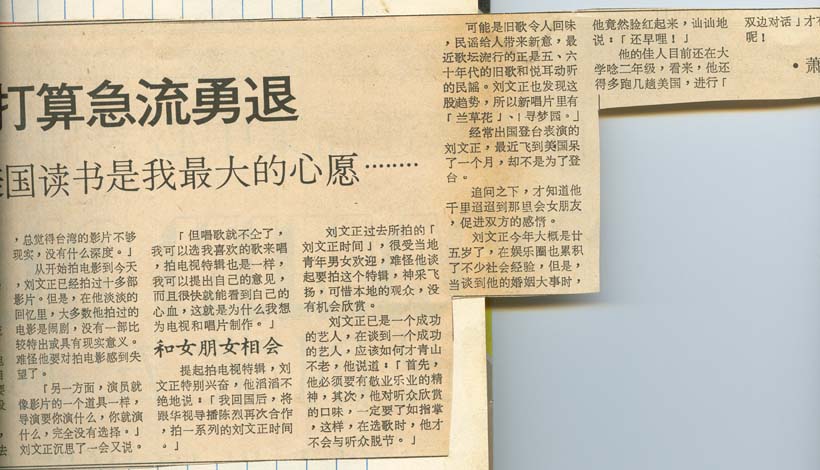 打算急流勇退
国读书是我最大的心愿········
，总觉得台湾的影片不够
现实，没有什么深度。」
从开始拍电影到今天
，刘文正已经拍过十多部
影片。但是，在他淡淡的
回忆里，大多数他拍过的
电影是闹剧，没有一部比
较特出或具有现实意义。
难怪他要对拍电影感到失
望了。
「另一方面，演员就
像影片的一个道具一样，
导演要你演什么，你就演
什么，完全没有选择。」
刘文正沉思了一会又说。
「但唱歌就不仝了，
我可以选我喜欢的歌来唱
，拍电视特辑也是一样，
我可以提出自己的意见，
而且很快就能看到自己的
心血，这就是为什么我想
为电视和唱片制作。」
和女朋女相会
提起拍电视特辑，刘
文正特别兴奋，他滔滔不
绝地说：「我回国后，将
跟华视导播陈烈再次合作
，拍一系列的刘文正时间
。」
刘文正过去所拍的「
刘文正时间」，很受当地
青年男女欢迎，难怪他谈
起要拍这个特辑，神采飞
扬，可惜本地的观众，没
有机会欣赏。
刘文正已是一个成功
的艺人，在谈到一个成功
的艺人，应该如何才青山
不老，他说道：「首先，
他必须要有敬业乐业的精
神，其次，他对听众欣赏
的口味，一定要了如指掌
，这样，在选歌时，他才
不会与听众脱节。」
可能是旧歌令人回味
，民谣给人带来新意，最
近歌坛流行的正是五、六
十年代的旧歌和悦耳动听
的民谣。刘文正也发现这
股趋势，所以新唱片里有
「兰草花」、「寻梦园。」
经常出国登台表演的
刘文正，最近飞到美国呆
了一个月，却不是为了登
台。
追问之下，才知道他
千里迢迢到那里会女朋友
，促进双方的感情。
刘文正今年大概是廿
五岁了，在娱乐圈也累积
了不少社会经验，但是，
当谈到他的婚姻大事时，
他竟然脸红起来，讪讪地
说：「还早哩！」
他的佳人目前还在大
学唸二年级，看来，他还
得多跑几趟美国，进行「
双边对话」才
呢！
·萧